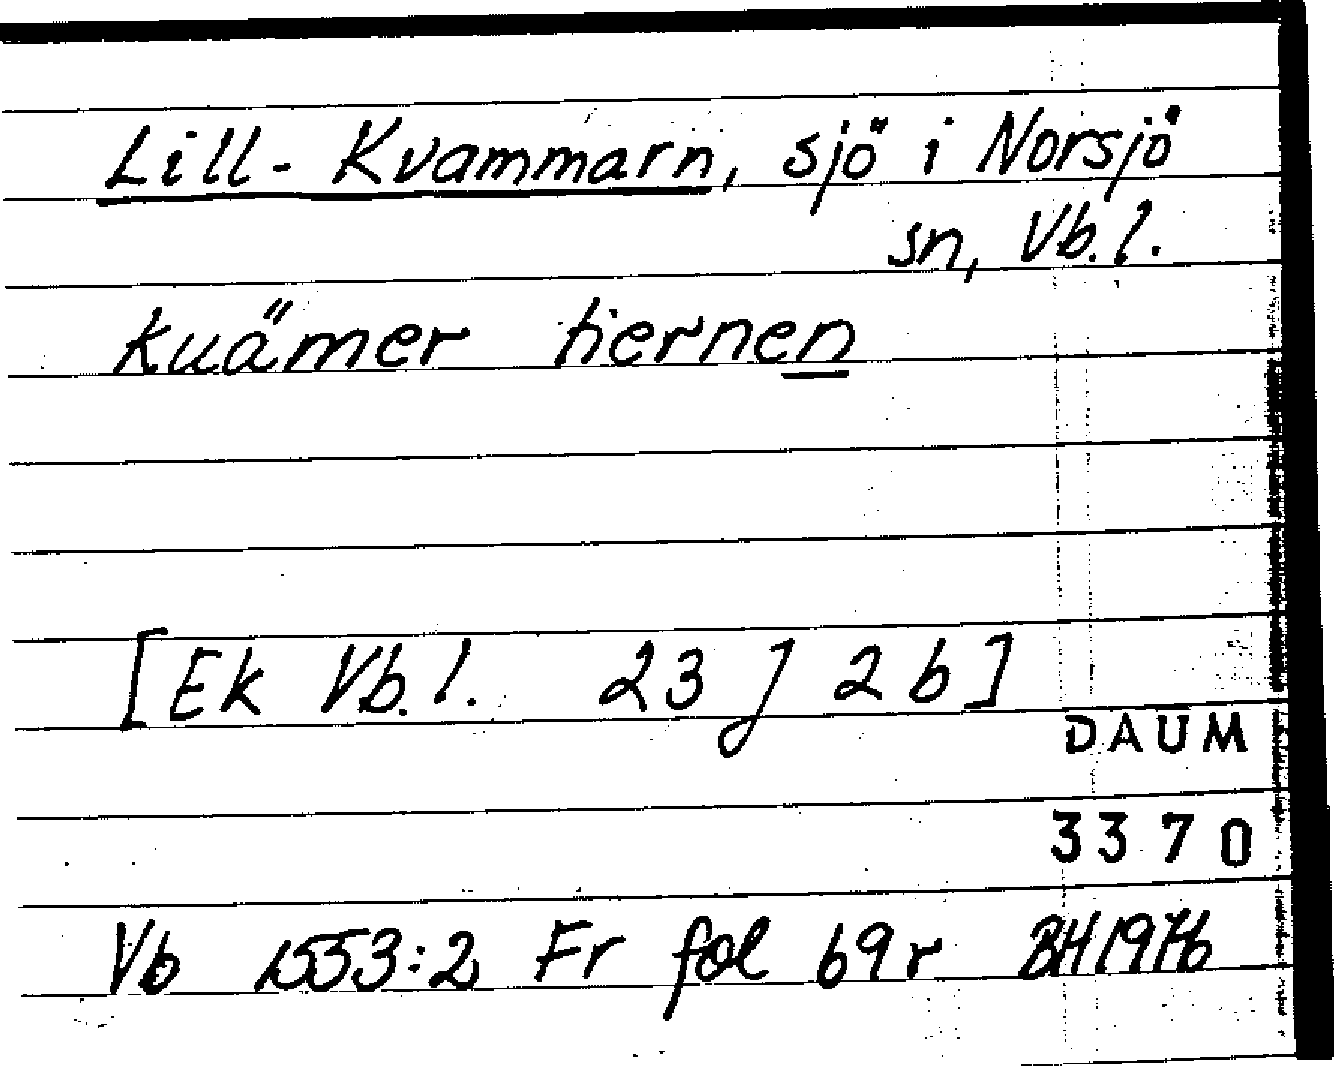 Lill-Kvammarn, sjö i Norsjö
sn, Vb.l.
kuämer tiernen
[Ek Vb.l. 23 J 2 b]
DAUM
3370
Vb 1553:2 Fr fol 69r BH 1976